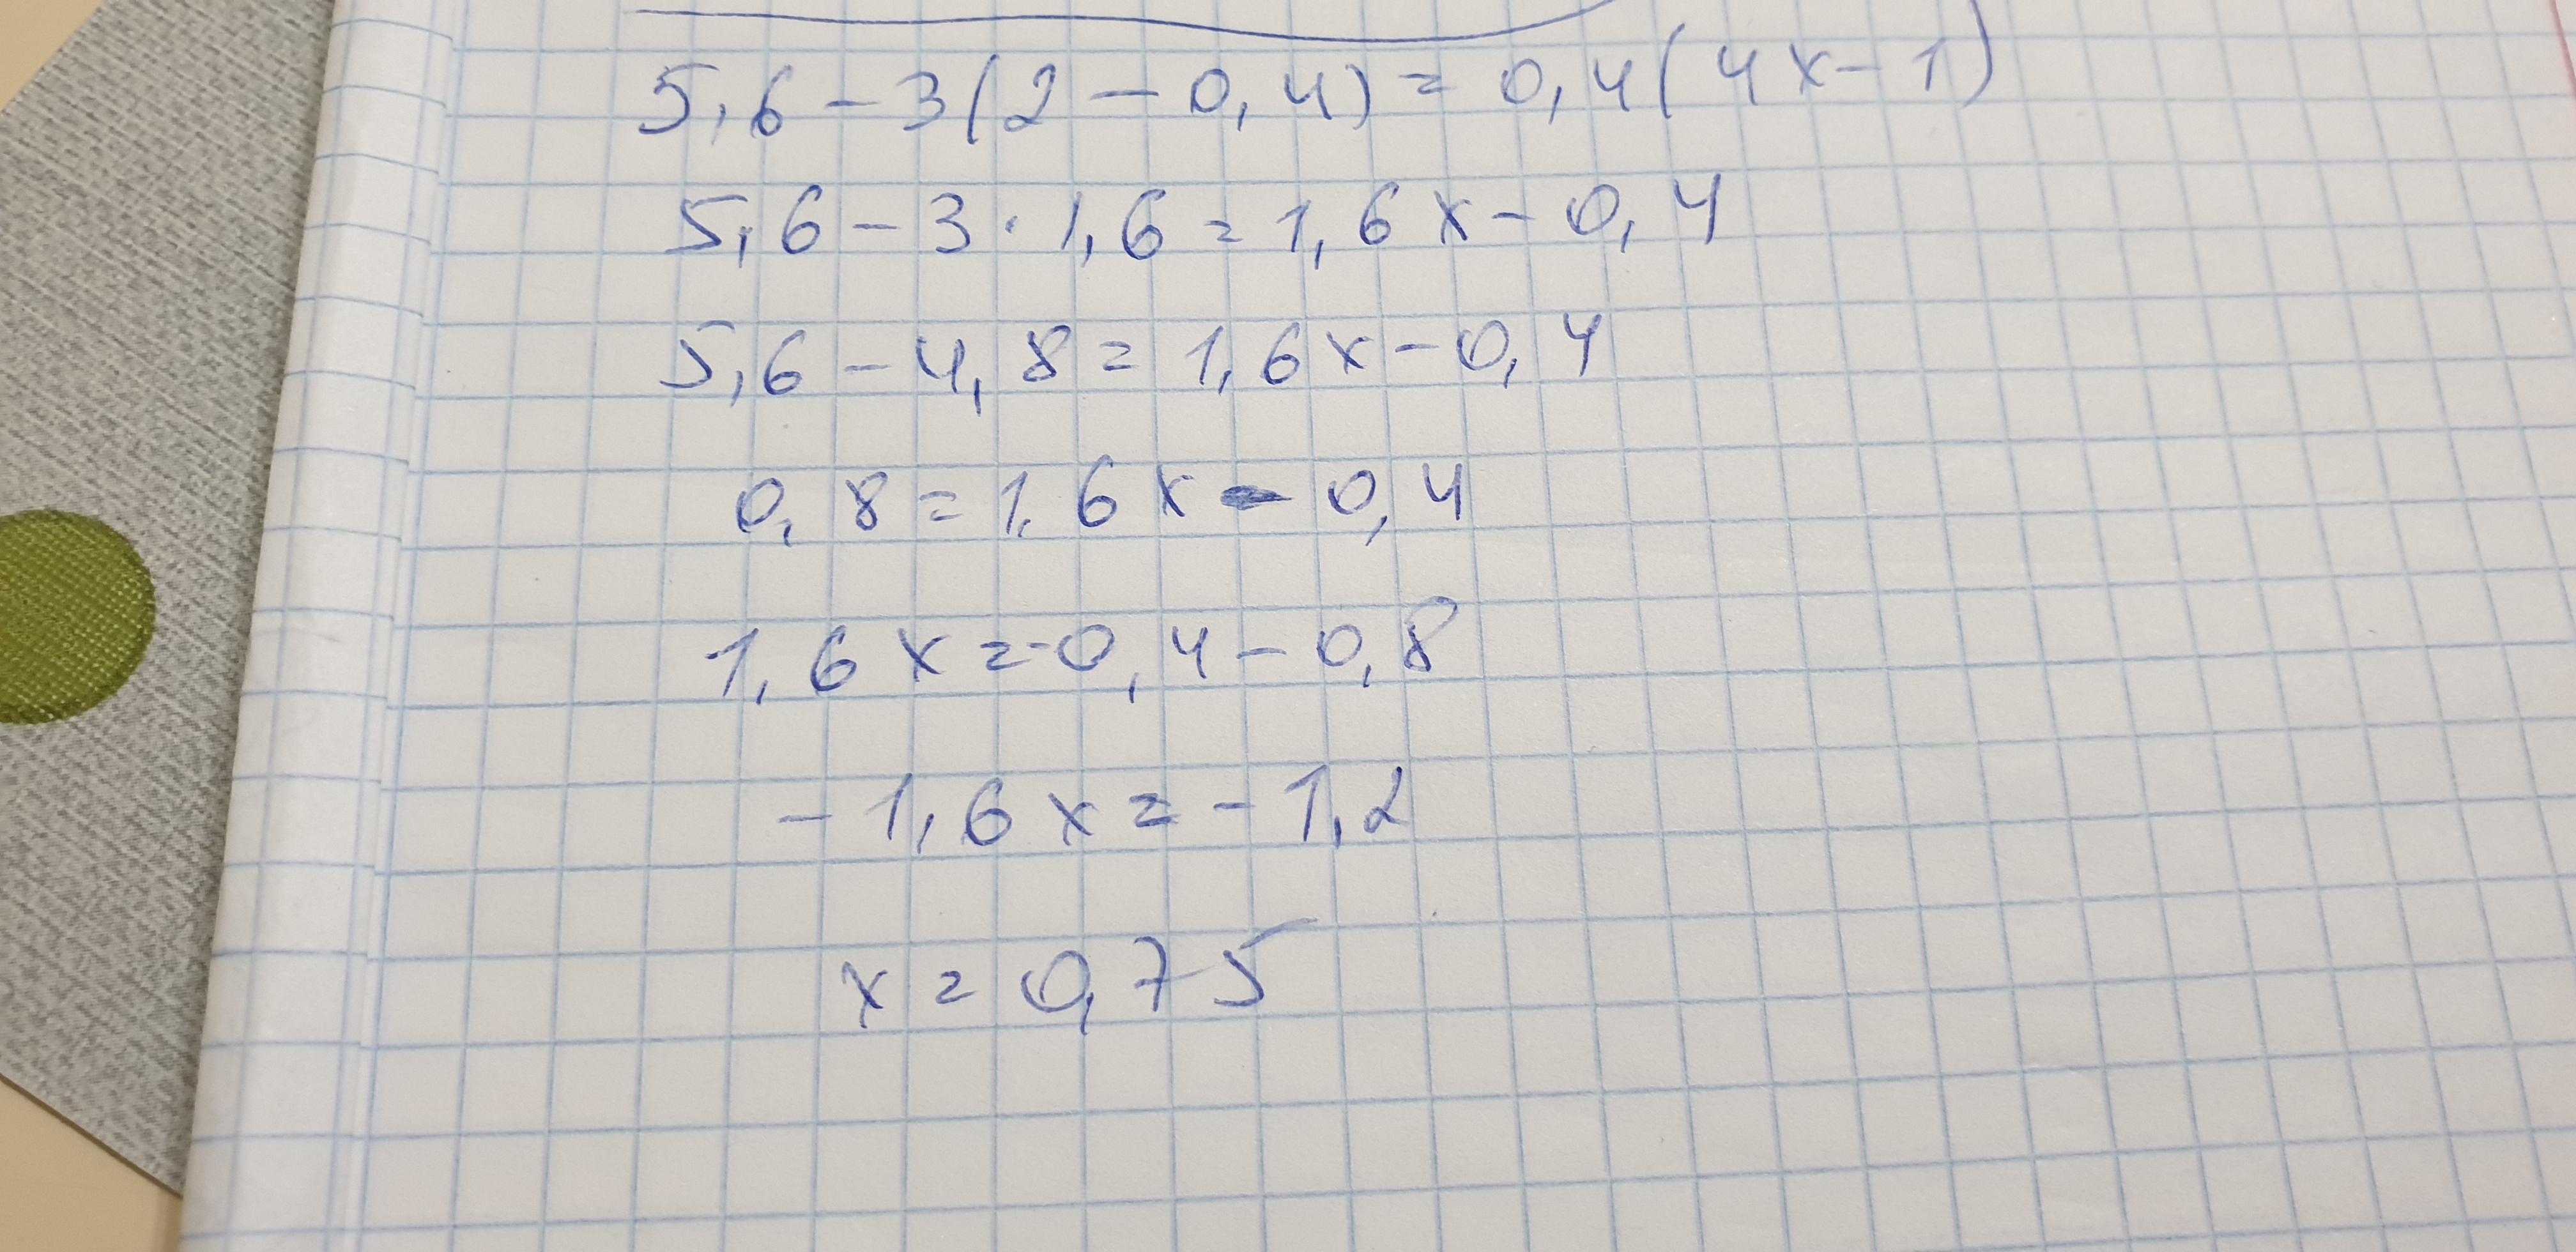 5,6 - 3(2 - 0,4) = 0,4(4x - 1)
5,6 - 3 · 1,6 = 1,6x - 0,4
5,6 - 4,8 = 1,6x - 0,4
0,8 = 1,6x - 0,4
1,6x = -0,4 - 0,8
-1,6x = -1,2
x = 0,75